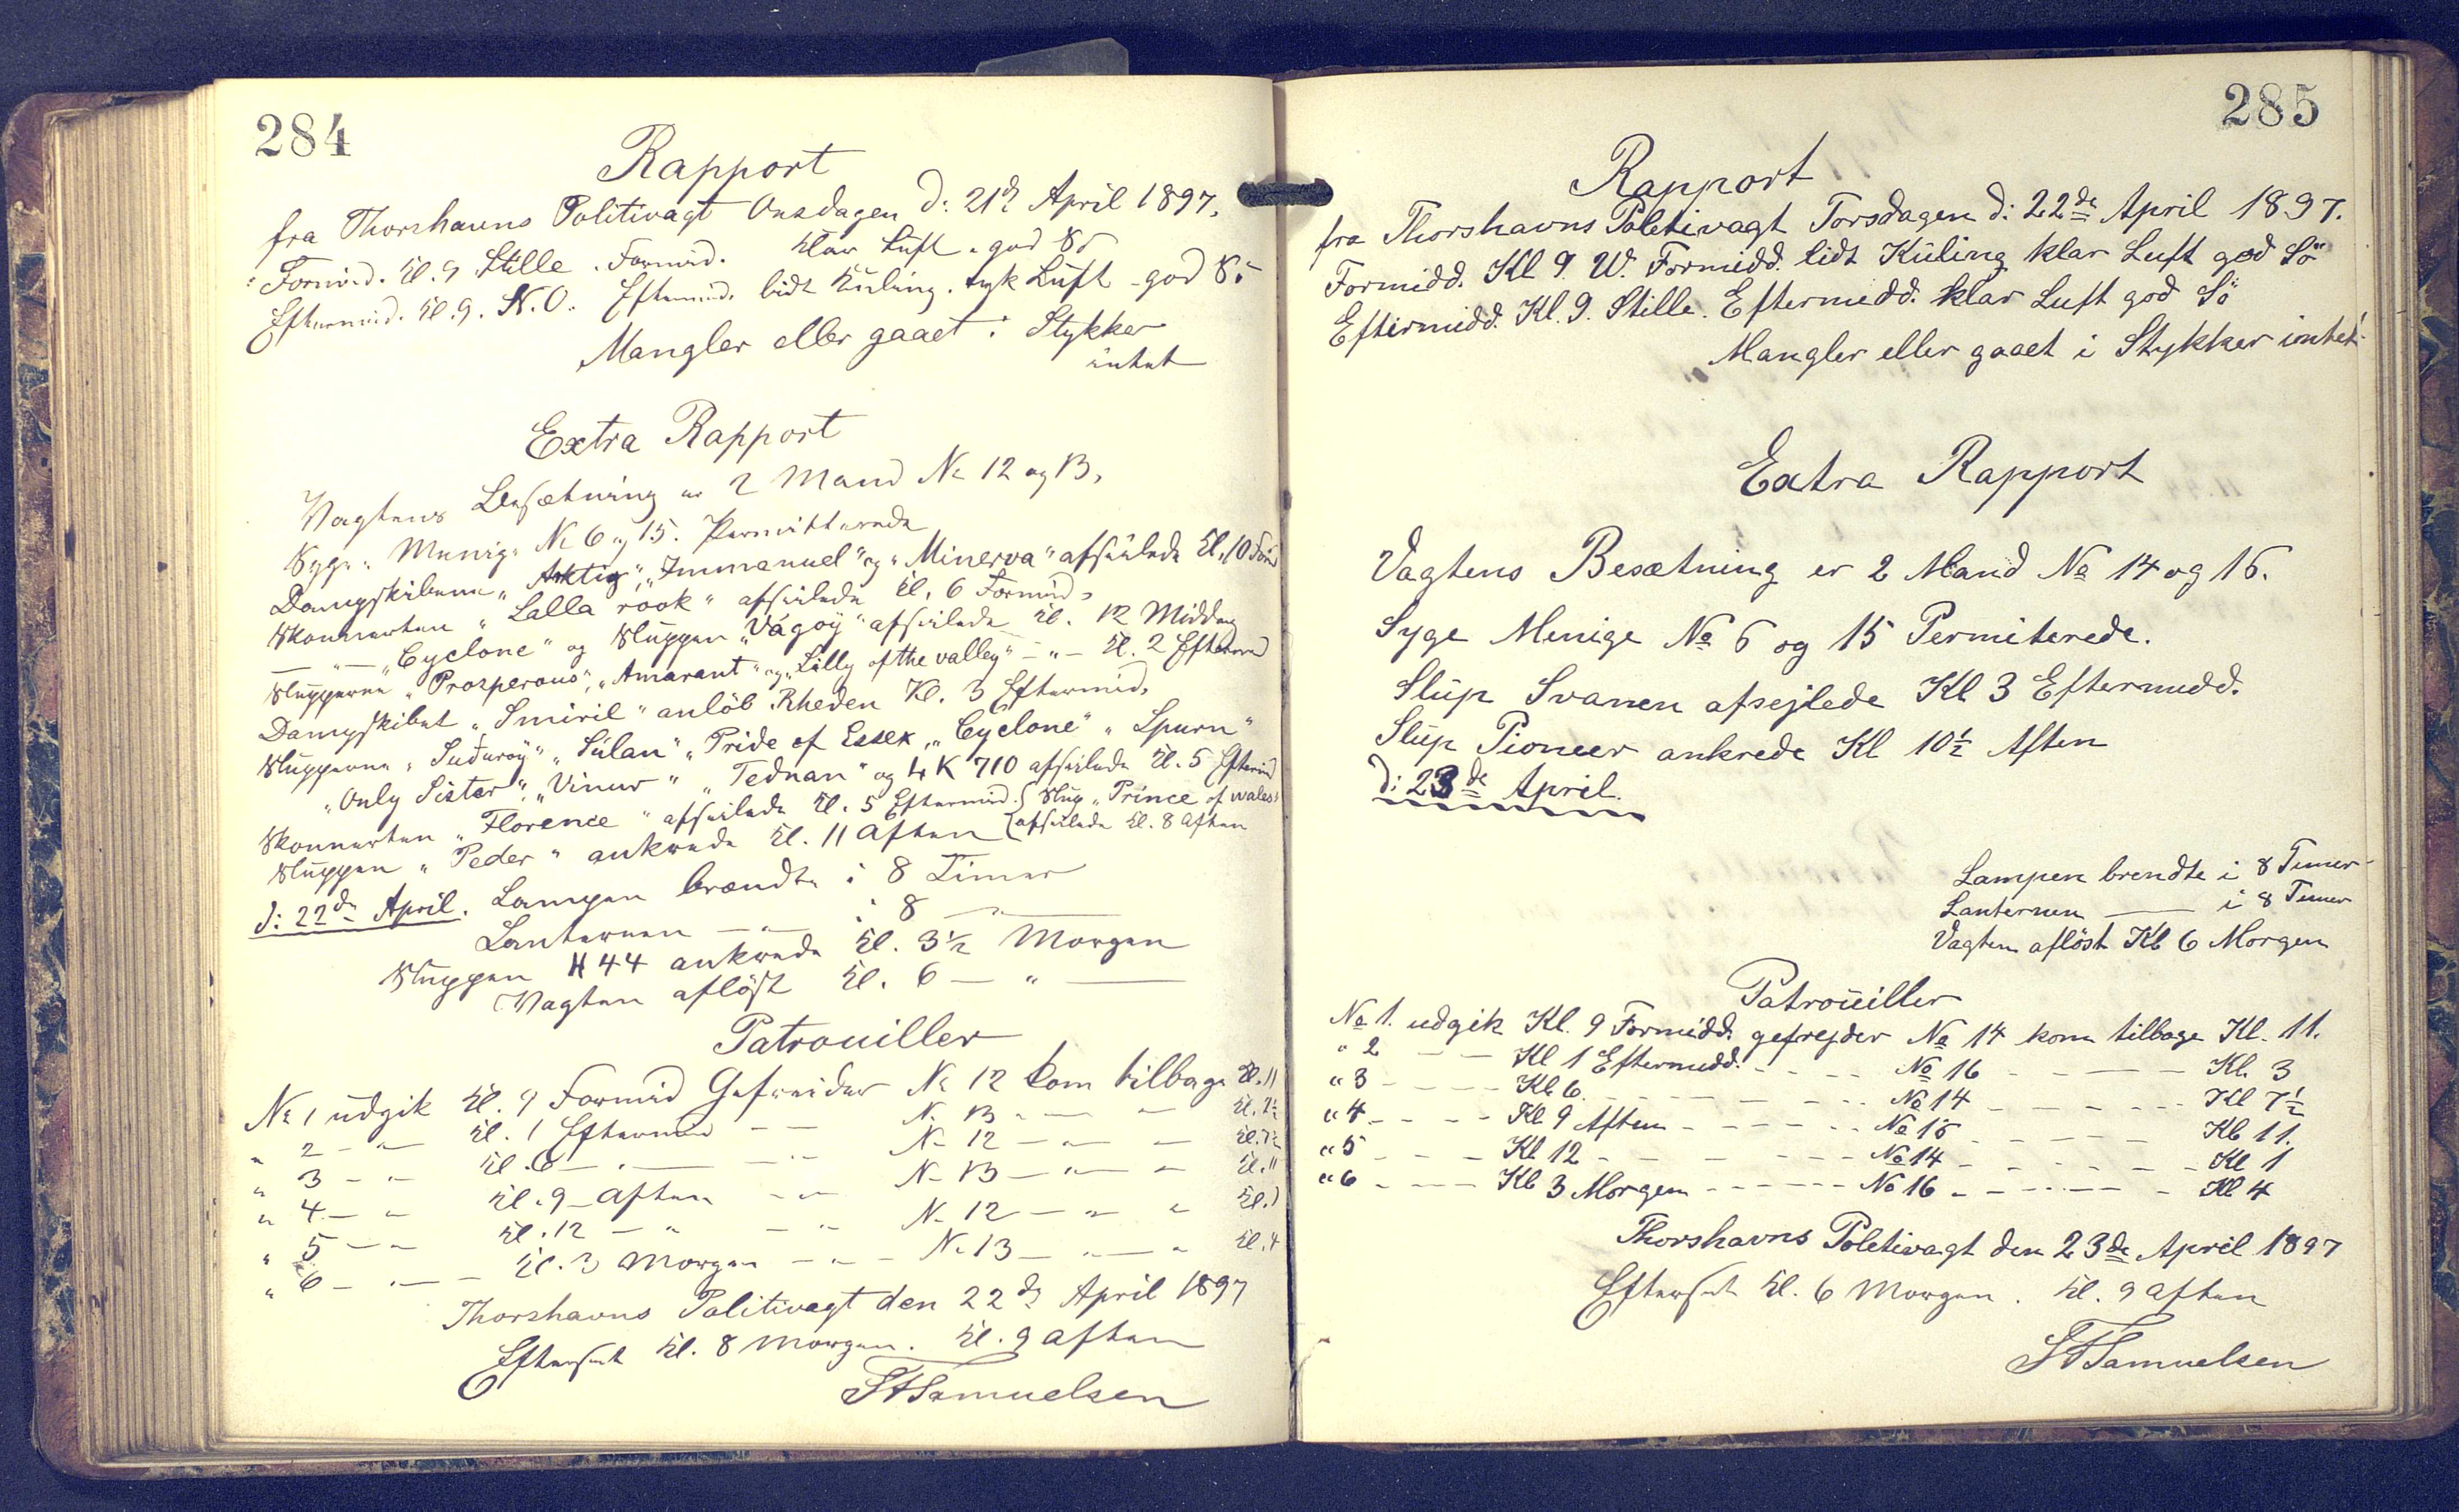 284
Rapport
fra Thorshavns Politivagt Onsdagen d: 21de April 1897.
Formid. Kl. 9 Stille. Formid. klar Luft. god Sö
Eftermid. Kl. 9. N.O. Eftermid. lidt Kuling. tyk Luft. god Sö
Mangler eller gaaet i Stykker
intet
Extra Rapport
Vagtens Besætning er 2 Mand No 12 og 13.
Syge. Menige No 6 og 15. Permitterede
Dampskibene "Arktig", "Immanuel" og "Minerva" afseilede Kl. 10 Form
Skonnerten "Lalla rook" afseilede Kl. 6 Formid.
— " — "Cyclone" og Sluppen "Vágoy" afseilede Kl. 12 Middag
Slupperne "Prosperous", "Amarant" og "Lilly of the valley" — " — Kl. 2 Eftermd
Dampskibet "Smiril" anlöb Rheden Kl. 3 Eftermid.
Slupperne "Suduroy" "Súlan" "Pride of Essex" "Cyclone" "Spurn"
"Only Sister", "Vinur" "Tednan" og LK 710 afseilede Kl. 5 Eftermd
Skonnerten "Florence" afseilede Kl. 5 Eftermid. { Slup "Prince of wales"
Sluppen "Peder" ankrede Kl. 11 Aften { afseilede Kl. 8 Aften
d: 22de April. Lampen brændte i 8 Timer
Lanternen — " — i 8 — " —
Sluppen H 44 ankrede Kl. 3½ Morgen
Vagten aflöst Kl. 6 — " —
Patrouiller
No 1 udgik Kl. 9 Formid Gefreider No 12 kom tilbage Kl. 11
" 2 — " Kl. 1 Eftermid — — No 13 — " — Kl. 2½
" 3 — " Kl. 6 — " — No 12 — " — Kl. 7½
" 4 — " Kl. 9 Aften — " No 13 — " — Kl. 11
" 5 — " Kl. 12 — " — " No 12 — " " Kl. 1
" 6 — " — Kl. 3 Morgen — " — No 13 — " — " Kl. 4
Thorshavns Politivagt den 22de April 1897
Efterset Kl. 8 Morgen. Kl. 9 Aften
Samuelsen
285
Rapport
fra Thorshavns Poletivagt Torsdagen d: 22de April 1897.
Formidd. Kl. 9. W. Formidd. lidt Küling klar Luft god Sö
Eftermidd. Kl. 9. Stille. Eftermidd. klar Luft god Sö
Mangler eller gaaet i Stykker intet.
Extra Rapport
Vagtens Besætning er 2 Mand No 14 og 16.
Syge Menige No 6 og 15 Permiterede.
Slüp Svanen afsejlede Kl 3 Eftermidd.
Slüp Pioneer ankrede Kl 10½ Aften
d: 23de April.
Lampen brendte i 8 Timer
Lanternen — i 8 Timer
Vagten aflöst Kl 6 Morgen
Patroüiller
No 1. udgik Kl. 9 Formidd. gefrejder No 14 kom tilbage Kl. 11.
" 2 — — Kl 1 Eftermidd. - - - - No 16 - - — — Kl. 3
" 3 - - - - Kl 6. - - - - - No 14 - - - - - Kl 7½
" 4 - - - - Kl 9 Aften - - - - - No 16 - - - - - Kl 11.
" 5 - - - Kl 12 - - - - - - No 14 - - - - - - Kl 1
" 6 - - - - Kl 3 Morgen - - - - - - No 16 - - - - - Kl 4
Thorshavns Poletivagt den 23de April 1897
Efterset Kl. 6 Morgen. Kl. 9 Aften
Samuelsen